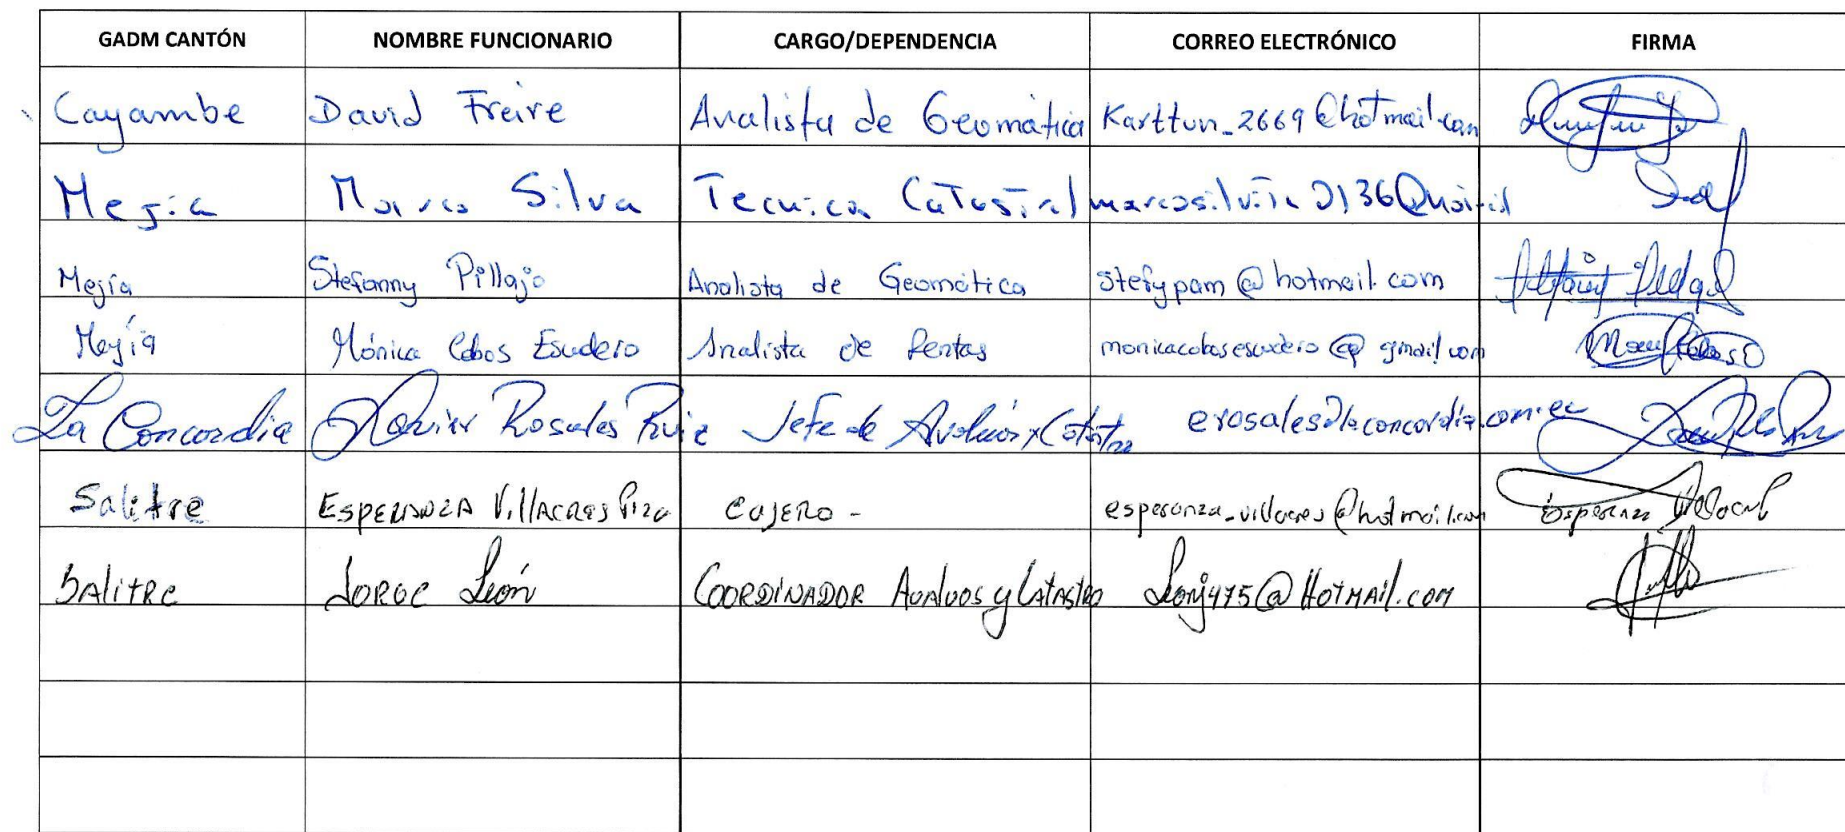 GADM CANTÓN NOMBRE FUNCIONARIO CARGO/DEPENDENCIA CORREO ELECTRÓNICO FIRMA
Cayambe David Freire Analista de Geomática Karttun_2669@hotmail.com
Mejía Marco Silva Tecnico Catastral
Mejía Stefanny Pillajo Analista de Geomática stefypam@hotmail.com
Mejía Mónica Cobos Escudero Analista de Rentas monicacobosescudero@gmail.com
La Concordia Xavier Rosales Ruiz Jefe de Avalúos y Catastro
Salitre ESPERANZA VillACRES CAJERO - esperanza_villacres@hotmail.com
SAlitRe JORGE León COORDINADOR AvAlúos y CAtAstRo Leonj475@HotMAil.com